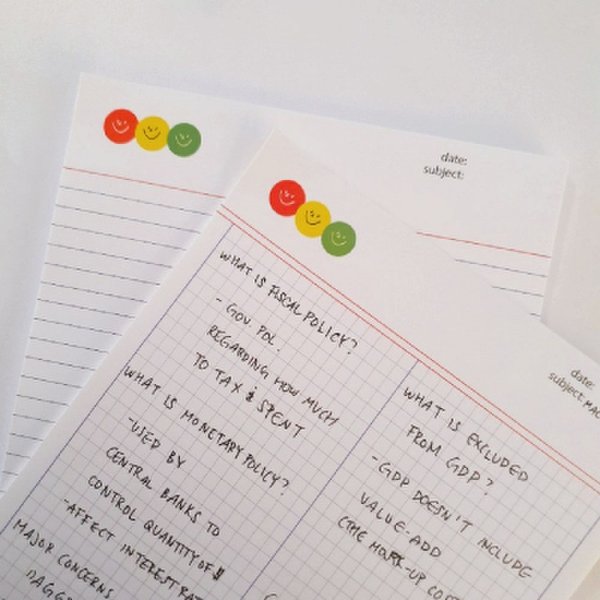 date:
subject:
date:
subject: MAC
WHAT IS FISCAL POLICY?
- GOV. POL.
REGARDING HOW MUCH
TO TAX & SPENT
WHAT IS MONETARY POLICY?
- USED BY
CENTRAL BANKS TO
CONTROL QUANTITY OF $
- AFFECT INTEREST RAT
MAJOR CONCERNS
WHAT IS EXCLUDED
FROM GDP?
- GDP DOESN'T INCLUDE
VALUE-ADD
(THE MARK-UP COS